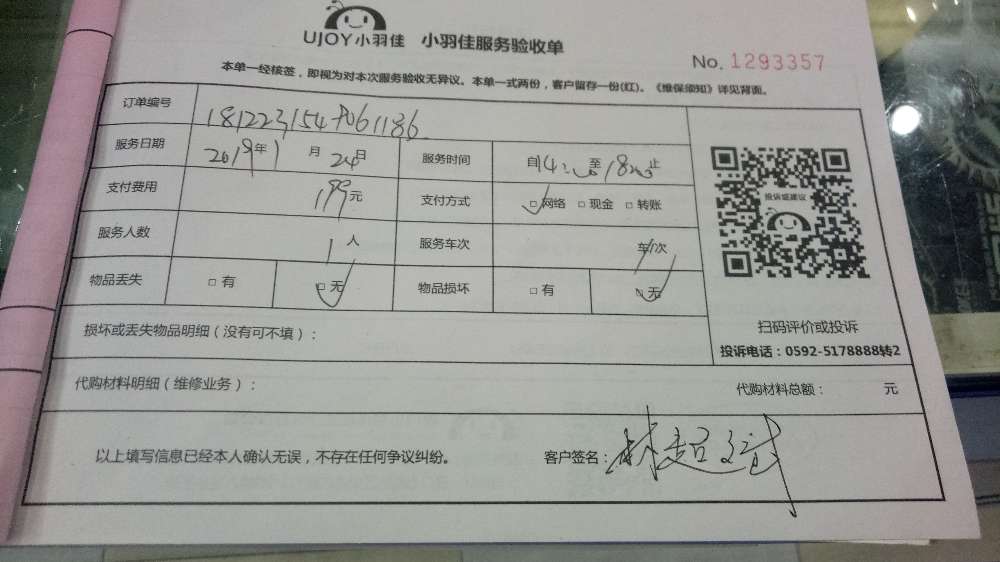 UJOY小羽佳 小羽佳服务验收单
No. 1293357
本单一经核签，即视为对本次服务验收无异议。本单一式两份，客户留存一份(红)。《维保须知》详见背面。
订单编号
服务日期 2019年1月24日 服务时间 自14: 至18: 止
支付费用 199元 支付方式 □网络 □现金 □转账
服务人数 1人 服务车次 车次
物品丢失 □有 □无 物品损坏 □有 □无
投诉或建议
扫码评价或投诉
投诉电话：0592-5178888转2
损坏或丢失物品明细（没有可不填）：
代购材料明细（维修业务）： 代购材料总额： 元
以上填写信息已经本人确认无误，不存在任何争议纠纷。 客户签名：林超